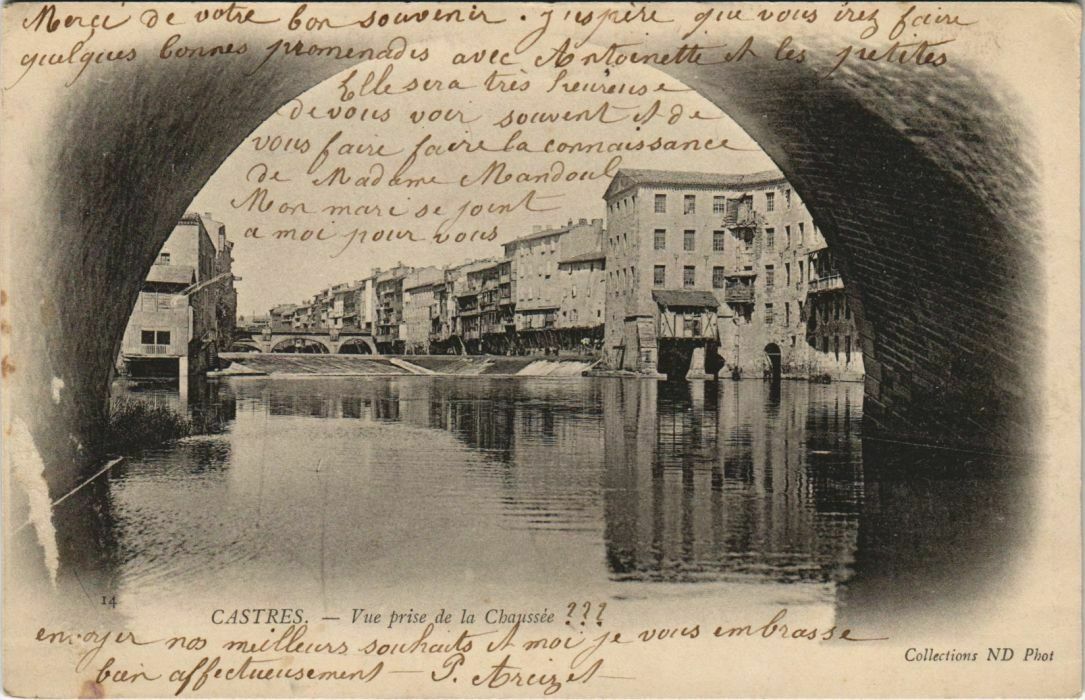 Merci de votre bon souvenir. J'espère que vous irez faire
quelques bonnes promenades avec Antoinette et les petites
Elle sera très heureuse
de vous voir souvent et de
vous faire faire la connaissance
de Madame Mandoul
Mon mari se joint
a moi pour vous
14
CASTRES. — Vue prise de la Chaussée ???
envoyer nos meilleurs souhaits et moi je vous embrasse
bien affectueusement — P.
Collections ND Phot